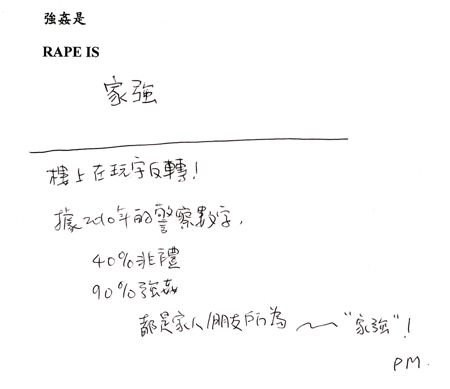 強姦是
RAPE IS
家強
樓上在玩字反轉！
據2010年的警察數字，
40%非禮
90%強姦
都是家人/朋友所為 ～ "家強"！
PM.